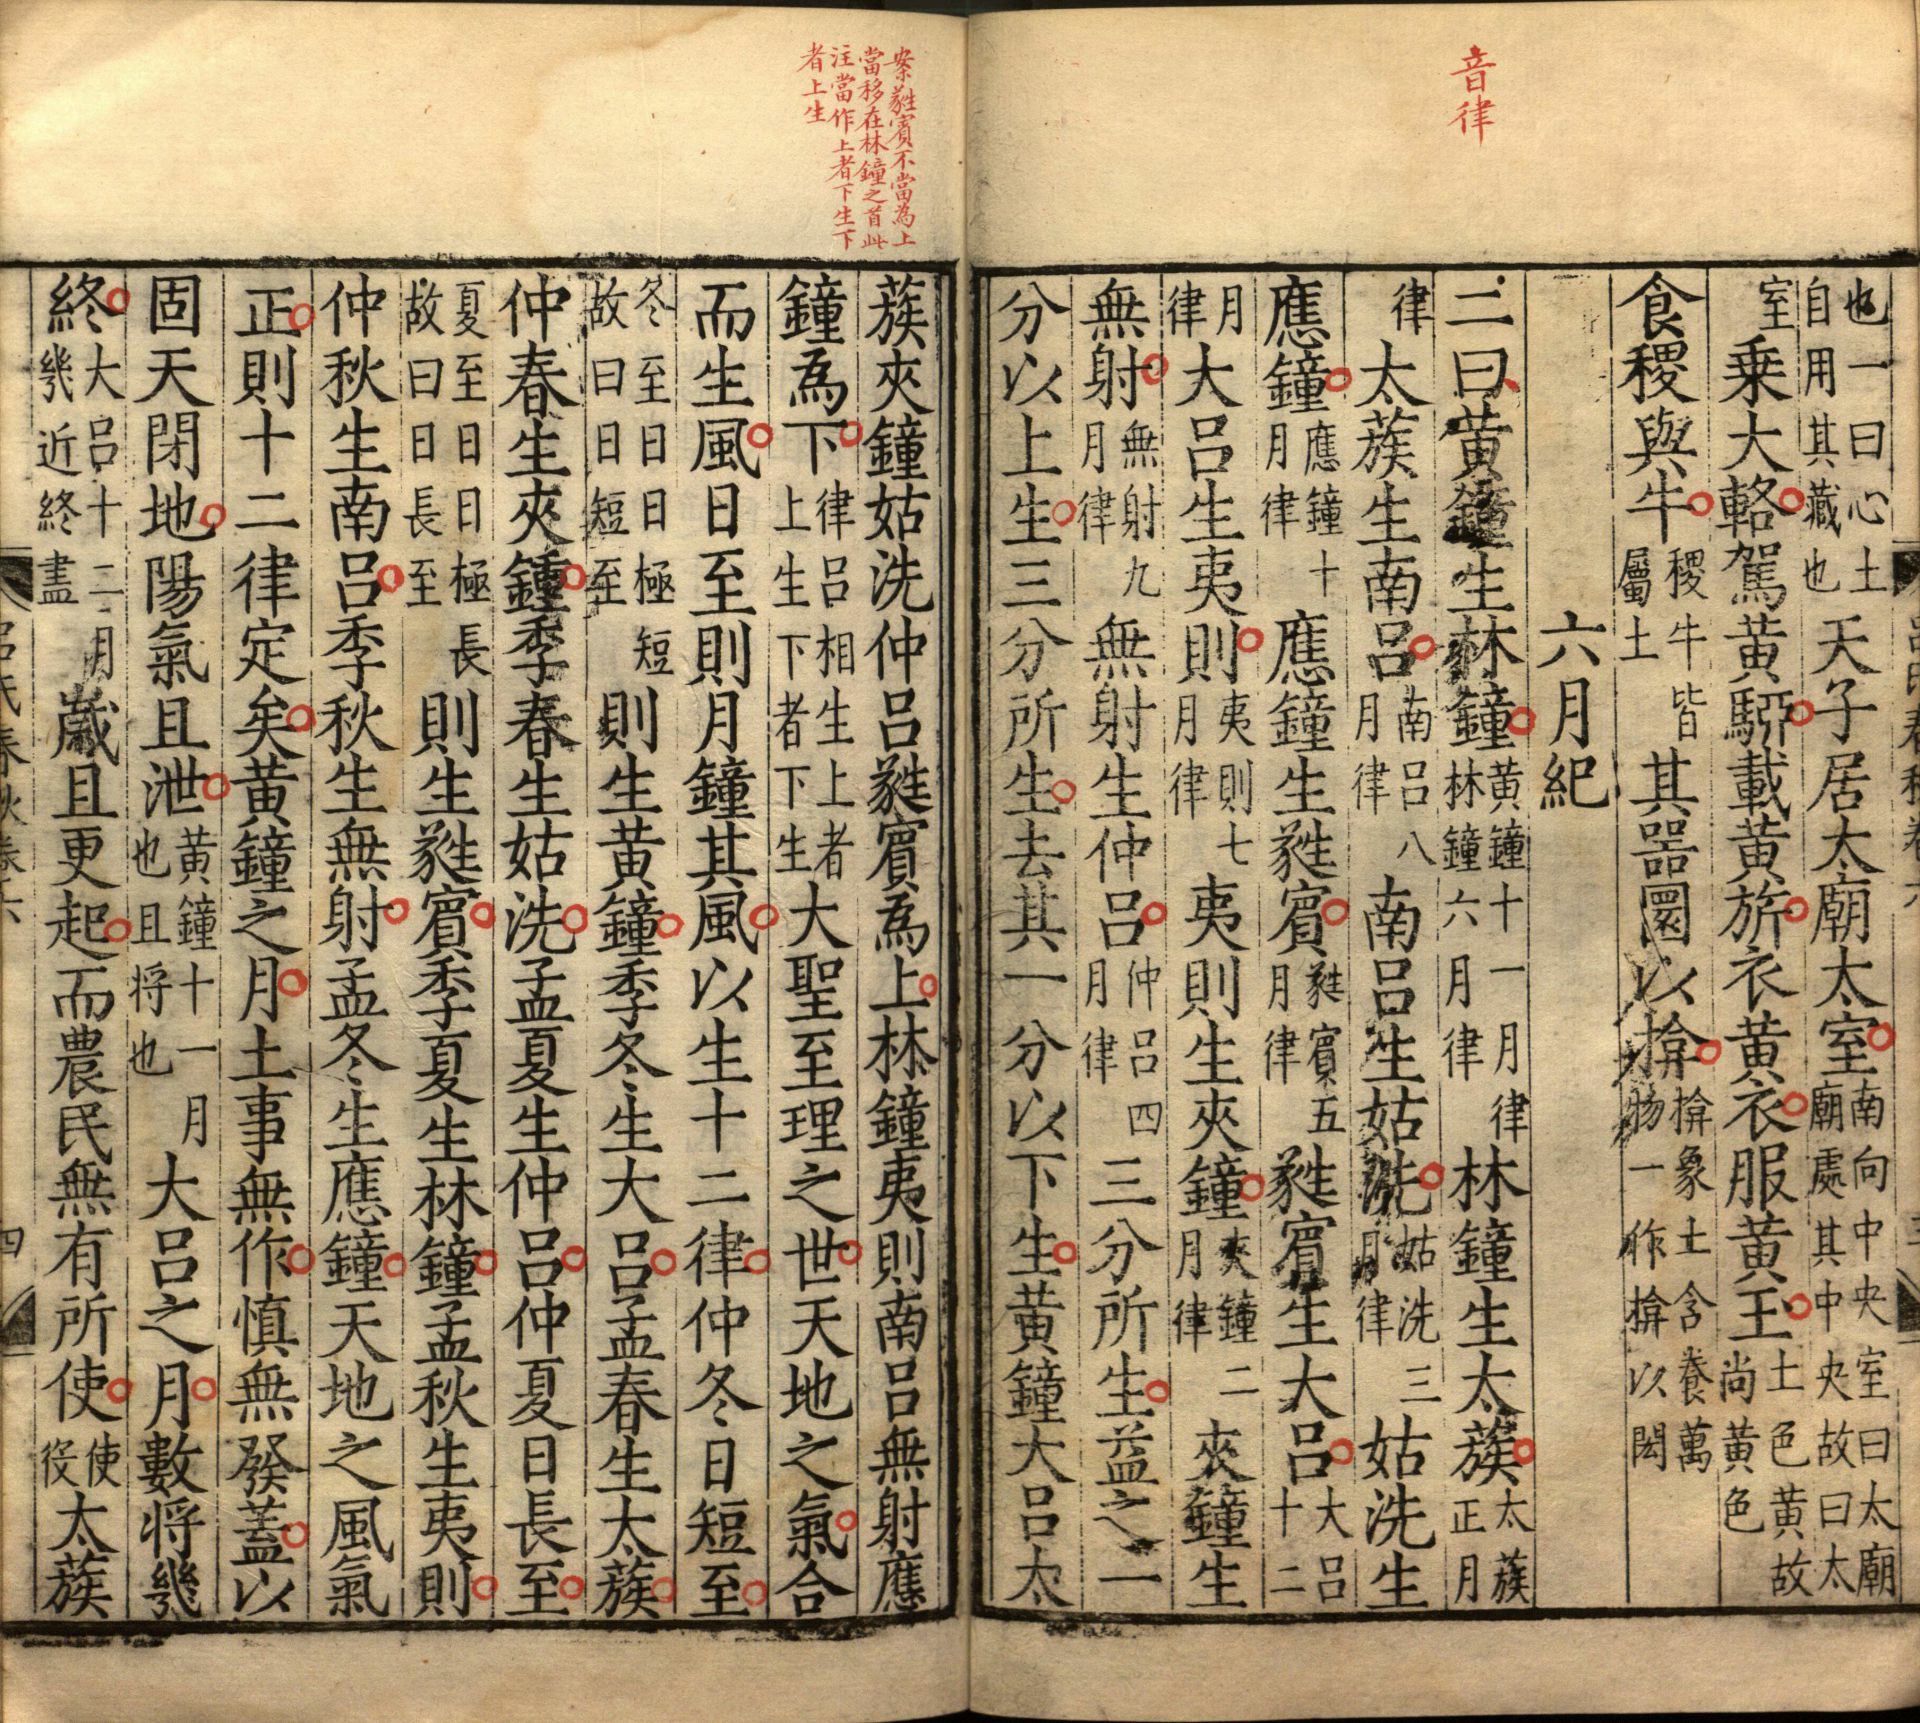 音律
也一曰心土自用其藏也天子居太廟太室南向中央室曰太廟廟處其中央故曰太
室乗大輅駕黃騮載黃旂衣黃衣服黃玉土色黃故尚黃色
食稷與牛稷牛皆屬土其器圜以揜揜象土含養萬物一作揜以閎
六月紀
二曰黃鐘生林鐘黃鐘十一月律林鐘六月律林鐘生太蔟太蔟正月
律太蔟生南呂南呂八月律南呂生姑洗姑洗三月律姑洗生
應鐘應鐘十月律應鐘生蕤賓蕤賓五月律蕤賓生大呂大呂十二
月律大呂生夷則夷則七月律夷則生夾鐘夾鐘二月律夾鐘生
無射無射九月律無射生仲呂仲呂四月律三分所生益之一
分以上生三分所生去其一分以下生黃鐘大呂太
案蕤賓不當為上
當移在林鐘之首此
注當作上者下生下
者上生
蔟夾鐘姑洗仲呂蕤賓為上林鐘夷則南呂無射應
鐘為下律呂相生上者上生下者下生大聖至理之世天地之氣合
而生風日至則月鐘其風以生十二律仲冬日短至
冬至日日極短故曰日短至則生黃鐘季冬生大呂孟春生太蔟
仲春生夾鍾季春生姑洗孟夏生仲呂仲夏日長至
夏至日日極長故曰日長至則生蕤賓季夏生林鐘孟秋生夷則
仲秋生南呂季秋生無射孟冬生應鐘天地之風氣
正則十二律定矣黃鐘之月土事無作慎無發蓋以
固天閉地陽氣且泄黃鐘十一月也且將也大呂之月數將幾
終大呂十二月幾近終盡歲且更起而農民無有所使使役太蔟
四